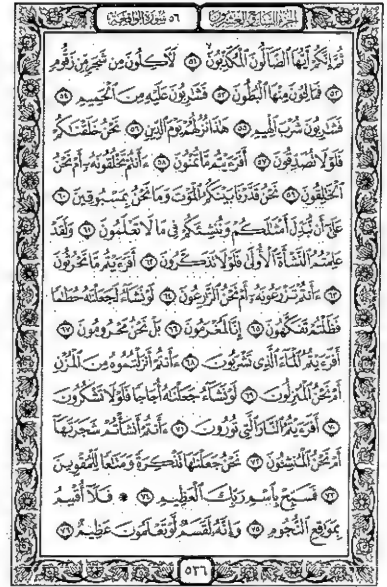 الجزء السابع والعشرون
٥٦ سورة الواقعة
ثُمَّ إِنَّكُمْ أَيُّهَا ٱلضَّآلُّونَ ٱلْمُكَذِّبُونَ ٥١ لَأٓكِلُونَ مِن شَجَرٍ مِّن زَقُّومٍ
٥٢ فَمَالِـُٔونَ مِنْهَا ٱلْبُطُونَ ٥٣ فَشَٰرِبُونَ عَلَيْهِ مِنَ ٱلْحَمِيمِ ٥٤
فَشَٰرِبُونَ شُرْبَ ٱلْهِيمِ ٥٥ هَٰذَا نُزُلُهُمْ يَوْمَ ٱلدِّينِ ٥٦ نَحْنُ خَلَقْنَٰكُمْ
فَلَوْلَا تُصَدِّقُونَ ٥٧ أَفَرَءَيْتُم مَّا تُمْنُونَ ٥٨ ءَأَنتُمْ تَخْلُقُونَهُۥٓ أَمْ نَحْنُ
ٱلْخَٰلِقُونَ ٥٩ نَحْنُ قَدَّرْنَا بَيْنَكُمُ ٱلْمَوْتَ وَمَا نَحْنُ بِمَسْبُوقِينَ ٦٠
عَلَىٰٓ أَن نُّبَدِّلَ أَمْثَٰلَكُمْ وَنُنشِئَكُمْ فِى مَا لَا تَعْلَمُونَ ٦١ وَلَقَدْ
عَلِمْتُمُ ٱلنَّشْأَةَ ٱلْأُولَىٰ فَلَوْلَا تَذَكَّرُونَ ٦٢ أَفَرَءَيْتُم مَّا تَحْرُثُونَ
٦٣ ءَأَنتُمْ تَزْرَعُونَهُۥٓ أَمْ نَحْنُ ٱلزَّٰرِعُونَ ٦٤ لَوْ نَشَآءُ لَجَعَلْنَٰهُ حُطَٰمًا
فَظَلْتُمْ تَفَكَّهُونَ ٦٥ إِنَّا لَمُغْرَمُونَ ٦٦ بَلْ نَحْنُ مَحْرُومُونَ ٦٧
أَفَرَءَيْتُمُ ٱلْمَآءَ ٱلَّذِى تَشْرَبُونَ ٦٨ ءَأَنتُمْ أَنزَلْتُمُوهُ مِنَ ٱلْمُزْنِ
أَمْ نَحْنُ ٱلْمُنزِلُونَ ٦٩ لَوْ نَشَآءُ جَعَلْنَٰهُ أُجَاجًا فَلَوْلَا تَشْكُرُونَ
٧٠ أَفَرَءَيْتُمُ ٱلنَّارَ ٱلَّتِى تُورُونَ ٧١ ءَأَنتُمْ أَنشَأْتُمْ شَجَرَتَهَآ
أَمْ نَحْنُ ٱلْمُنشِـُٔونَ ٧٢ نَحْنُ جَعَلْنَٰهَا تَذْكِرَةً وَمَتَٰعًا لِّلْمُقْوِينَ
٧٣ فَسَبِّحْ بِٱسْمِ رَبِّكَ ٱلْعَظِيمِ ٧٤ ۞ فَلَآ أُقْسِمُ
بِمَوَٰقِعِ ٱلنُّجُومِ ٧٥ وَإِنَّهُۥ لَقَسَمٌ لَّوْ تَعْلَمُونَ عَظِيمٌ ٧٦
٥٣٦